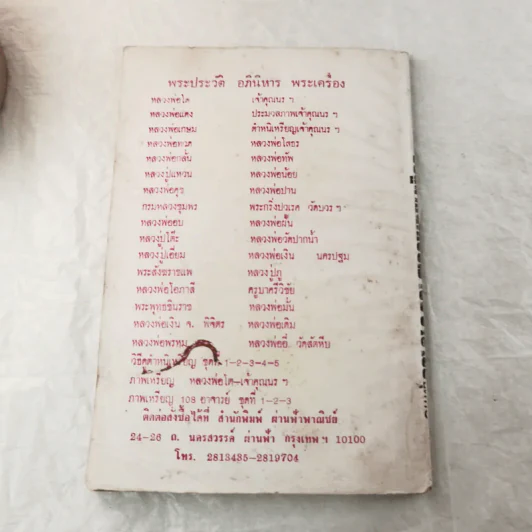 พระประวัติ อภินิหาร พระเครื่อง
หลวงพ่อโต เจ้าคุณนร ฯ
หลวงพ่อแดง ประมวลภาพเจ้าคุณนร ฯ
หลวงพ่อเกษม ตำหนิเหรียญเจ้าคุณนร ฯ
หลวงพ่อทวด หลวงพ่อโสธร
หลวงพ่อกลั่น หลวงพ่อทัพ
หลวงปู่แหวน หลวงพ่อน้อย
หลวงพ่อศุข หลวงพ่อปาน
กรมหลวงชุมพร พระกริ่งปวเรศ วัดบวร ฯ
หลวงพ่ออบ หลวงพ่อผั้น
หลวงปู่โต๊ะ หลวงพ่อวัดปากน้ำ
หลวงปู่เอี่ยม หลวงพ่อเงิน นครปฐม
พระสังฆราชแพ หลวงปู่ภู
หลวงพ่อโอภาสี ครูบาศรีวิชัย
พระพุทธชินราช หลวงพ่อมั่น
หลวงพ่อเงิน จ. พิจิตร หลวงพ่อเดิม
หลวงพ่อพรหม หลวงพ่ออี๋ วัดสัตหีบ
วิธีดูตำหนิเหรียญ ชุดที่ 1-2-3-4-5
ภาพเหรียญ หลวงพ่อโต-เจ้าคุณนร ฯ
ภาพเหรียญ 108 อาจารย์ ชุดที่ 1-2-3
ติดต่อสั่งซื้อได้ที่ สำนักพิมพ์ ผ่านฟ้าพาณิชย์
24-26 ถ. นครสวรรค์ ผ่านฟ้า กรุงเทพ ฯ 10100
โทร. 2813435-2819704